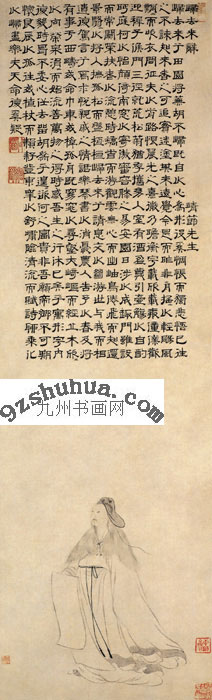 歸去來辭
靖節先生
歸去來兮田園將蕪胡不歸既自以心為形役奚惆悵而獨悲悟已往
之不諫知來者之可追實迷塗其未遠覺今是而昨非舟搖搖以輕颺風
飄飄而吹衣問征夫以前路恨晨光之熹微乃瞻衡宇載欣載奔僮僕歡
迎稚子候門三徑就荒松菊猶存攜幼入室有酒盈樽引壺觴以自酌
眄庭柯以怡顏倚南窗以寄傲審容膝之易安園日涉以成趣門雖設
而常關策扶老以流憩時矯首而遐觀雲無心以出岫鳥倦飛而知還
景翳翳以將入撫孤松而盤桓歸去來兮請息交以絕游世與我而相
遺復駕言兮焉求悅親戚之情話樂琴書以消憂農人告余以春及將
有事于西疇或命巾車或棹孤舟既窈窕以尋壑亦崎嶇而經丘木欣
欣以向榮泉涓涓而始流善萬物之得時感吾生之行休已矣乎寓形宇內
復幾時曷不委心任去留胡為遑遑欲何之富貴非吾願帝鄉不可期
懷良辰以孤往或植杖而耘耔登東皋以舒嘯臨清流而賦詩聊乘化
以歸盡樂夫天命復奚疑
9zshuhua.com
九州书画网